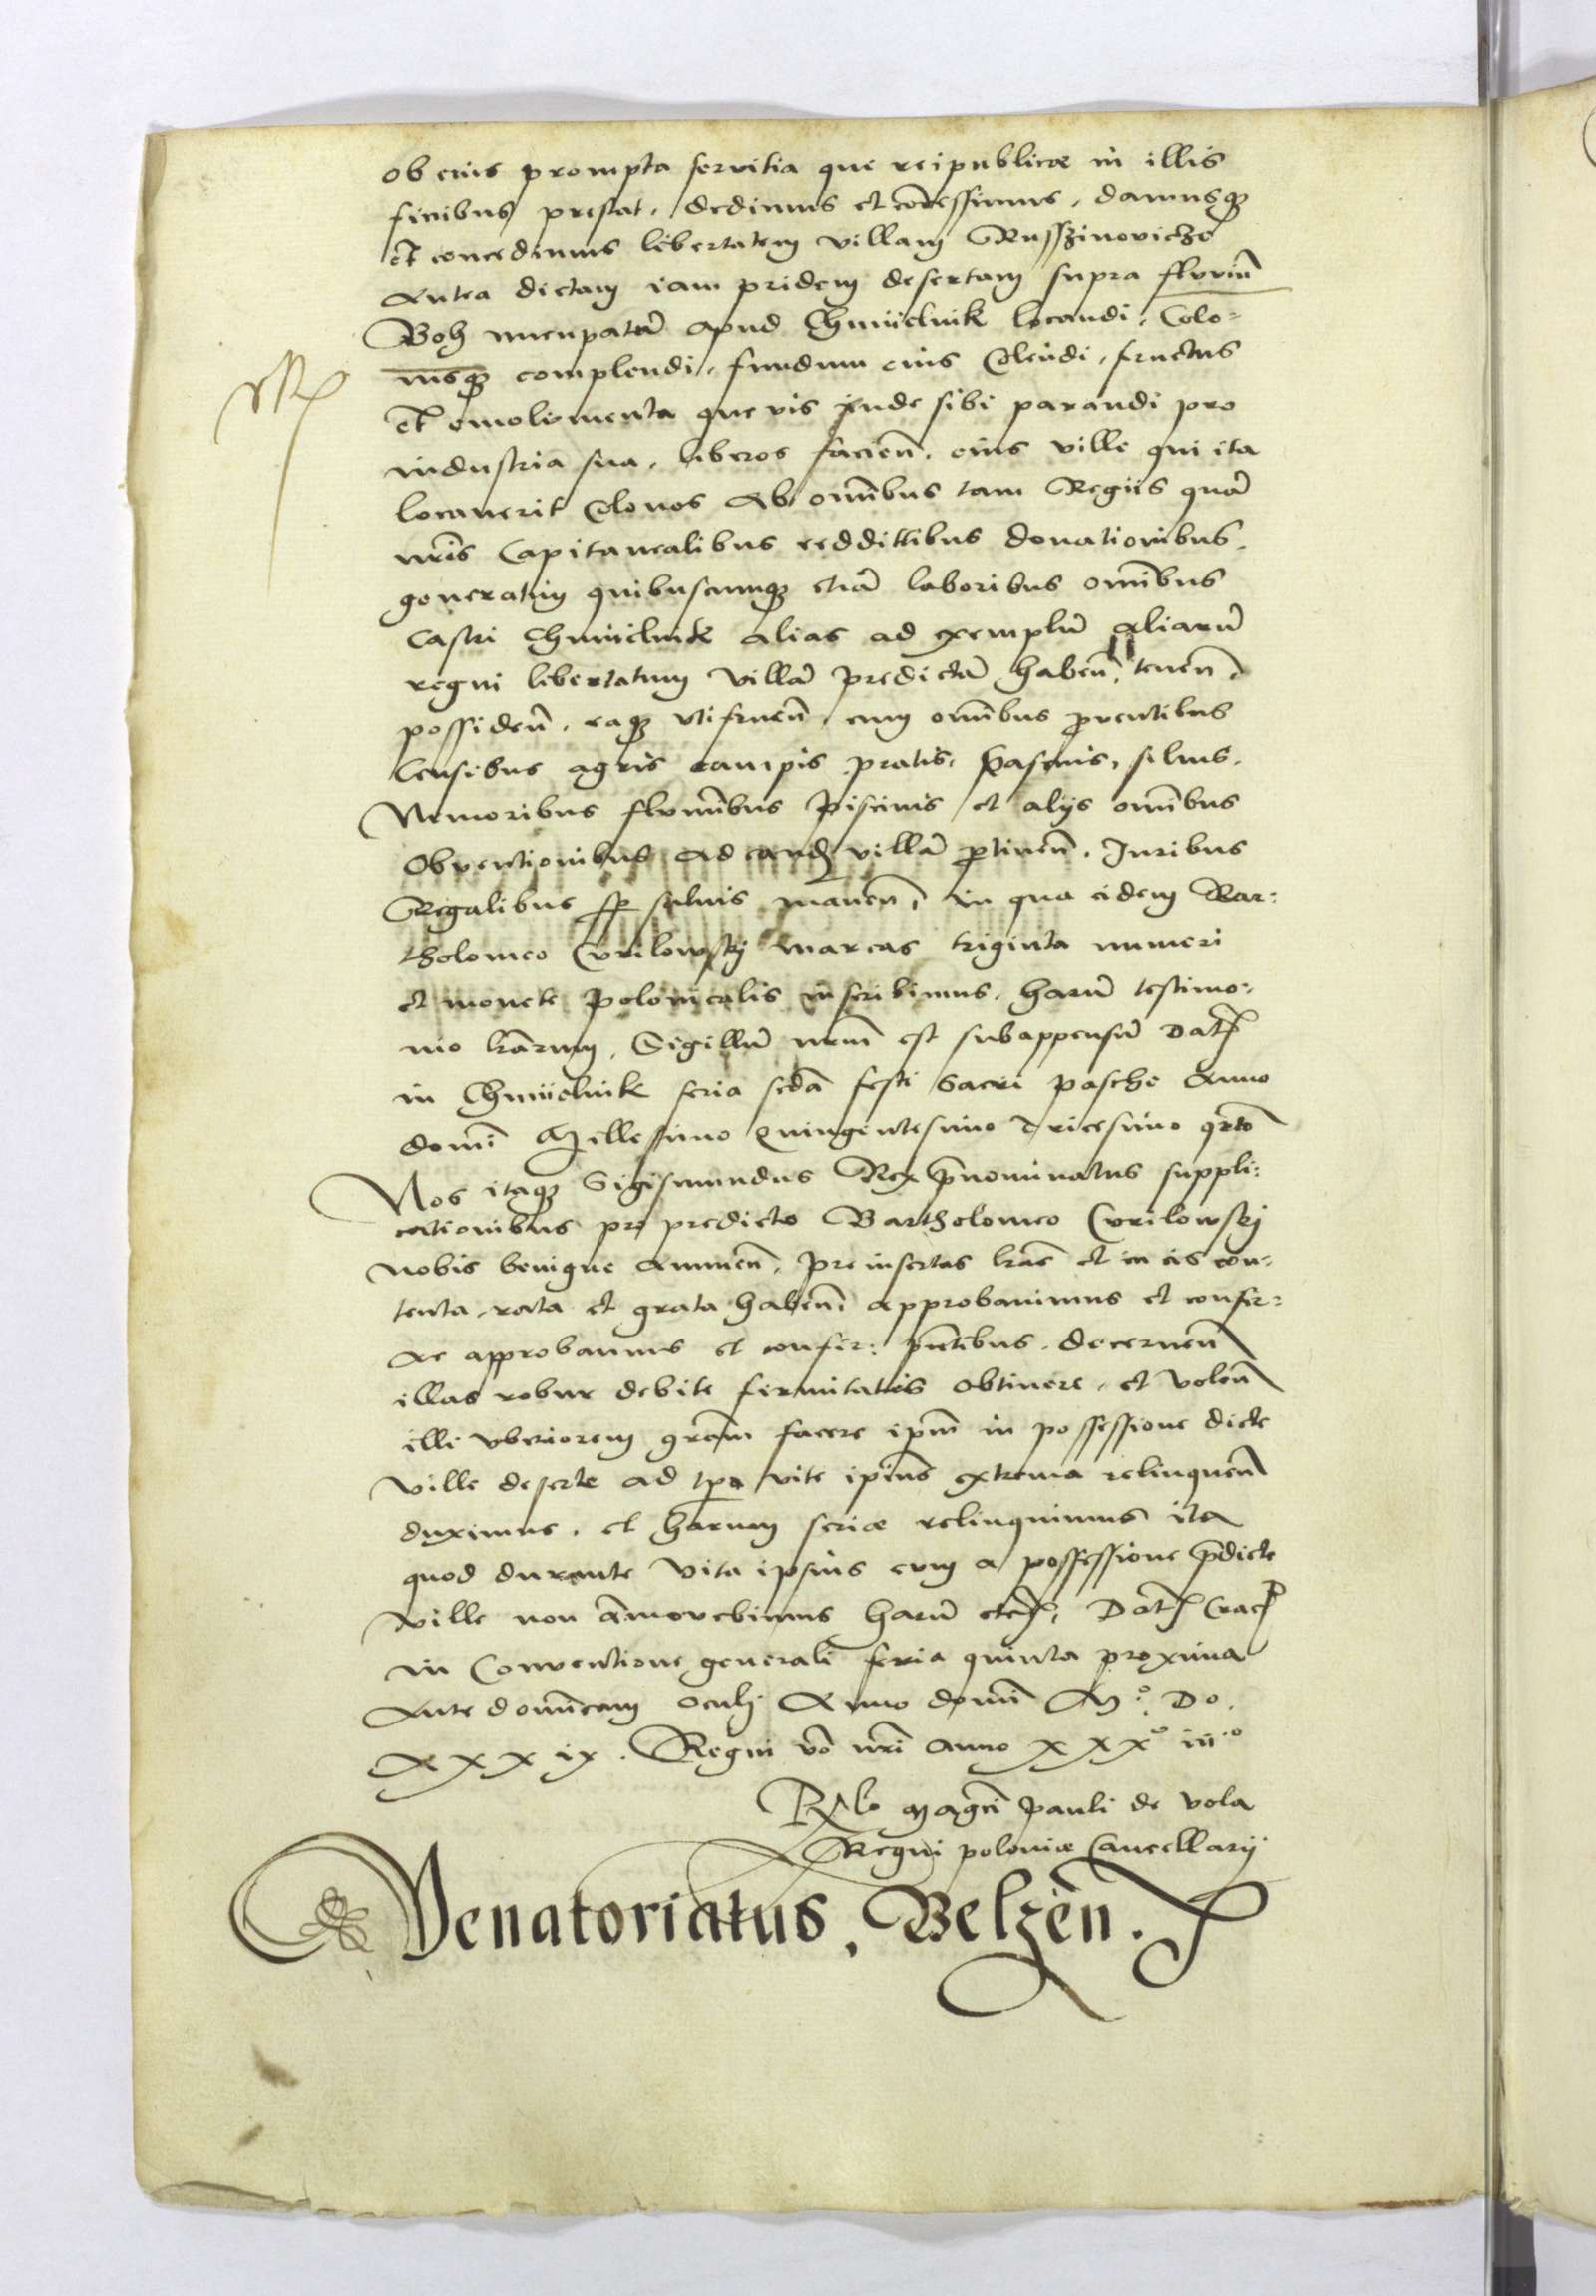 ob eius prompta servitia que reipublicæ in illis
finibus prestat, dedimus et concessimus, damusq3
et concedimus libertatem villam Russzinovicze
antea dictam iam pridem desertam supra fluviũ
Boh nuncupatũ apud Chmiielnik locandi, Colo=
nisq3 complendi, fundum eius Colẽndi, fructus
et emolimenta que vis inde sibi parandi pro
industria sua, liberos facieñ. eius ville qui ita
locaverit Colonos ab om̃ibus tam Regiis quã
nr̃is Capitanealibus reddittibus donationibus,
generatim quibuscunq3 etiã laboribus om̃ibus
castri Chmiielnik alias ad exemplũ aliarũ
regni libertatum villã predictã habeñ, teneñ,
possideñ, eaq3 utifrueñ, cum om̃ibus p̃ventibus
Censibus agris campis pratis, pascuis, siluis,
Nemoribus flumĩbus piscinis et alijs om̃ibus
Obventionibus ad eand villã p̃tineñ, Juribus
Regalibus sp̃ saluis maneñ, in qua eidem Bar:
tholomeo Cvrilowskij marcas triginta numeri
et monete polonicalis inscribimus, harũ testimo:
nio lr̃arum, Sigillũ nr̃m est subappensũ Dat
in Chmiielnik feria scđa festi sacri pasche Anno
domĩ Millesimo Quingentesimo Tricesimo qrto
Nos itaq3 Sigismundus Rex p̃nominatus suppli:
cationibus pro predicto Bartholomeo Cvrilowskij
nobis benigne annueñ, preinsertas lr̃as et in eis con:
tenta, rata et grata habeñ, approbavimus et confir:
ac approbamus et confir: pñtibus, decerneñ
illas robur debite firmitatis obtinere, et voleñ
illi uberiorem grãm facere ip̃m in possessione dicte
ville deserte ad tp̃a vite ip̃ius extrema relinqueñ
duximus, et harum serie relinquimus ita
quod durante vita ipsius eum a possessione p̃dicte
ville non amovebimus harũ etc, Dat Crac
in Conventione generali feria quinta proxima
Ante domĩcam oculi Anno domĩ Mº. Do.
XXXix. Regni vo nr̃i anno xxxº iiiº
Rlo Magci Pauli de vola
Regni poloniæ Cancellarij
Venatoriatus, Belzeñ.